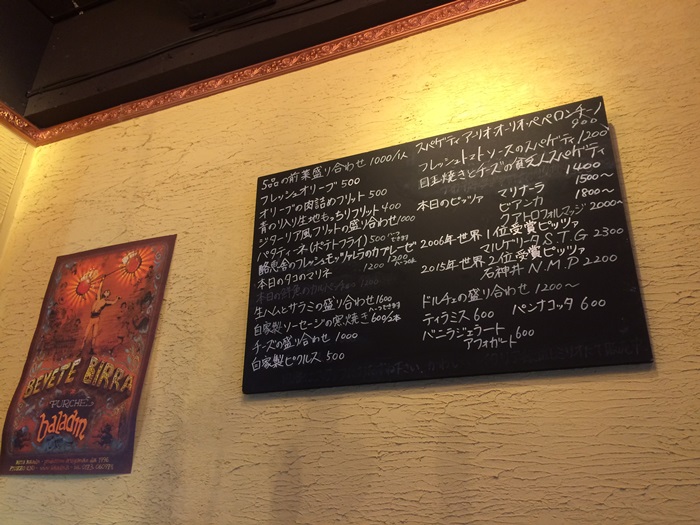 BEVETE BIRRA
"PURCHE"
baladin
5品の前菜盛り合わせ 1000/1人
フレッシュオリーブ 500
オリーブの肉詰めフリット 500
青のり入り生地もっちりフリット 400
ジターリア風フリットの盛り合わせ 1000
パタティーネ(ポテトフライ) 500
フレッシュモッツァレラのカプレーゼ 1200
本日のタコのマリネ 1200
生ハムとサラミの盛り合わせ 1600
自家製ソーセージの窯焼き 600/2本
チーズの盛り合わせ 1000
自家製ピクルス 500
スパゲティアーリオ・オーリオ・ペペロンチーノ 900
フレッシュトマトソースのスパゲティ 1200
目玉焼きとチーズの貧乏人スパゲティ 1400
本日のピッツァ マリナーラ 1500〜
ビアンカ 1800〜
クアトロフォルマッジ 2000〜
2006年世界1位受賞ピッツァ
マルゲリータS.T.G 2300
2015年世界2位受賞ピッツァ
石神井 N.M.P 2200
ドルチェの盛り合わせ 1200〜
ティラミス 600 パンナコッタ 600
バニラジェラート
アフォガート 600